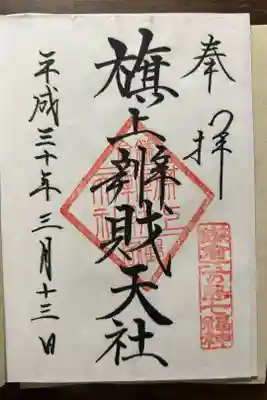 奉拝
旗上辨財天社
平成三十年三月十三日